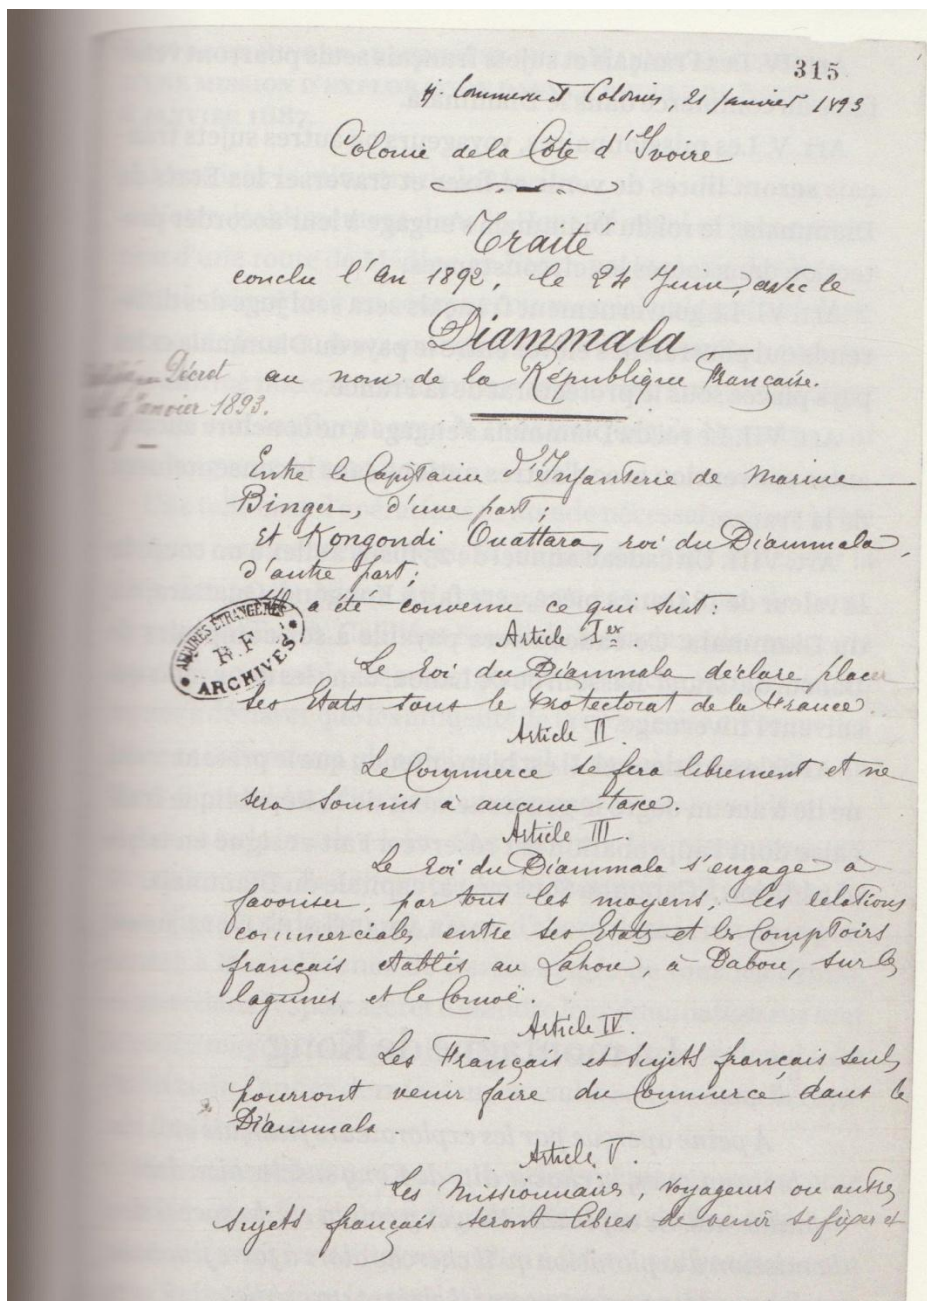 315
Commerce et Colonies, 21 Janvier 1893
Colonie de la Côte d'Ivoire
Traité
conclu l'An 1892, le 24 Juin, avec le
Diammala
au nom de la République Française.
Décret
Janvier 1893.
Entre le Capitaine d'Infanterie de Marine
Binger, d'une part;
Et Kongondi Ouattara, roi du Diammala,
d'autre part;
Il a été convenu ce qui suit:
AFFAIRES ÉTRANGÈRES
R.F
ARCHIVES
Article Ier
Le Roi du Diammala déclare placer
ses Etats sous le Protectorat de la France.
Article II.
Le Commerce se fera librement et ne
sera soumis à aucune taxe.
Article III.
Le Roi du Diammala s'engage à
favoriser, par tous les moyens, les relations
commerciales entre ses Etats et les Comptoirs
français établis au Lahou, à Dabou, sur les
lagunes et le Comoë.
Article IV.
Les Français et sujets français seuls
pourront venir faire du Commerce dans le
Diammala
Article V.
Les Missionnaires, voyageurs ou autres
sujets français seront libres de venir se fixer et